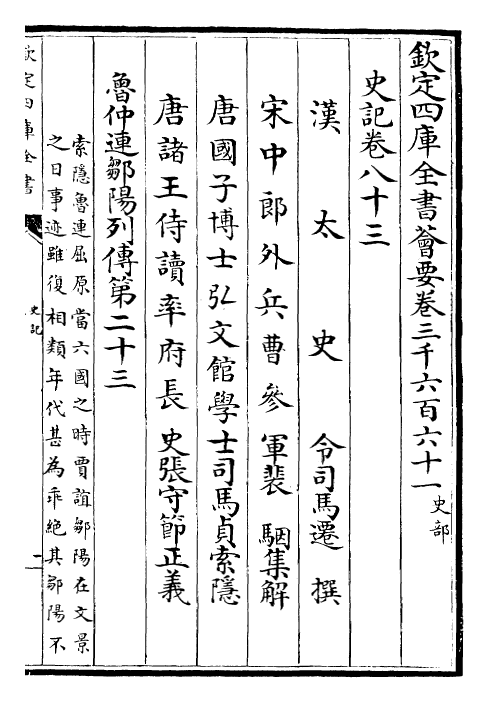 欽定四庫全書薈要卷三千六百六十一 史部
史記卷八十三
漢太史令司馬遷撰
宋中郎外兵曹參軍裴駰集解
唐國子博士弘文館學士司馬貞索隱
唐諸王侍讀率府長史張守節正義
魯仲連鄒陽列傳第二十三
索隱魯連屈原當六國之時賈誼鄒陽在文景
之日事迹雖復相類年代甚為乖絕其鄒陽不
欽定四庫全書
史記